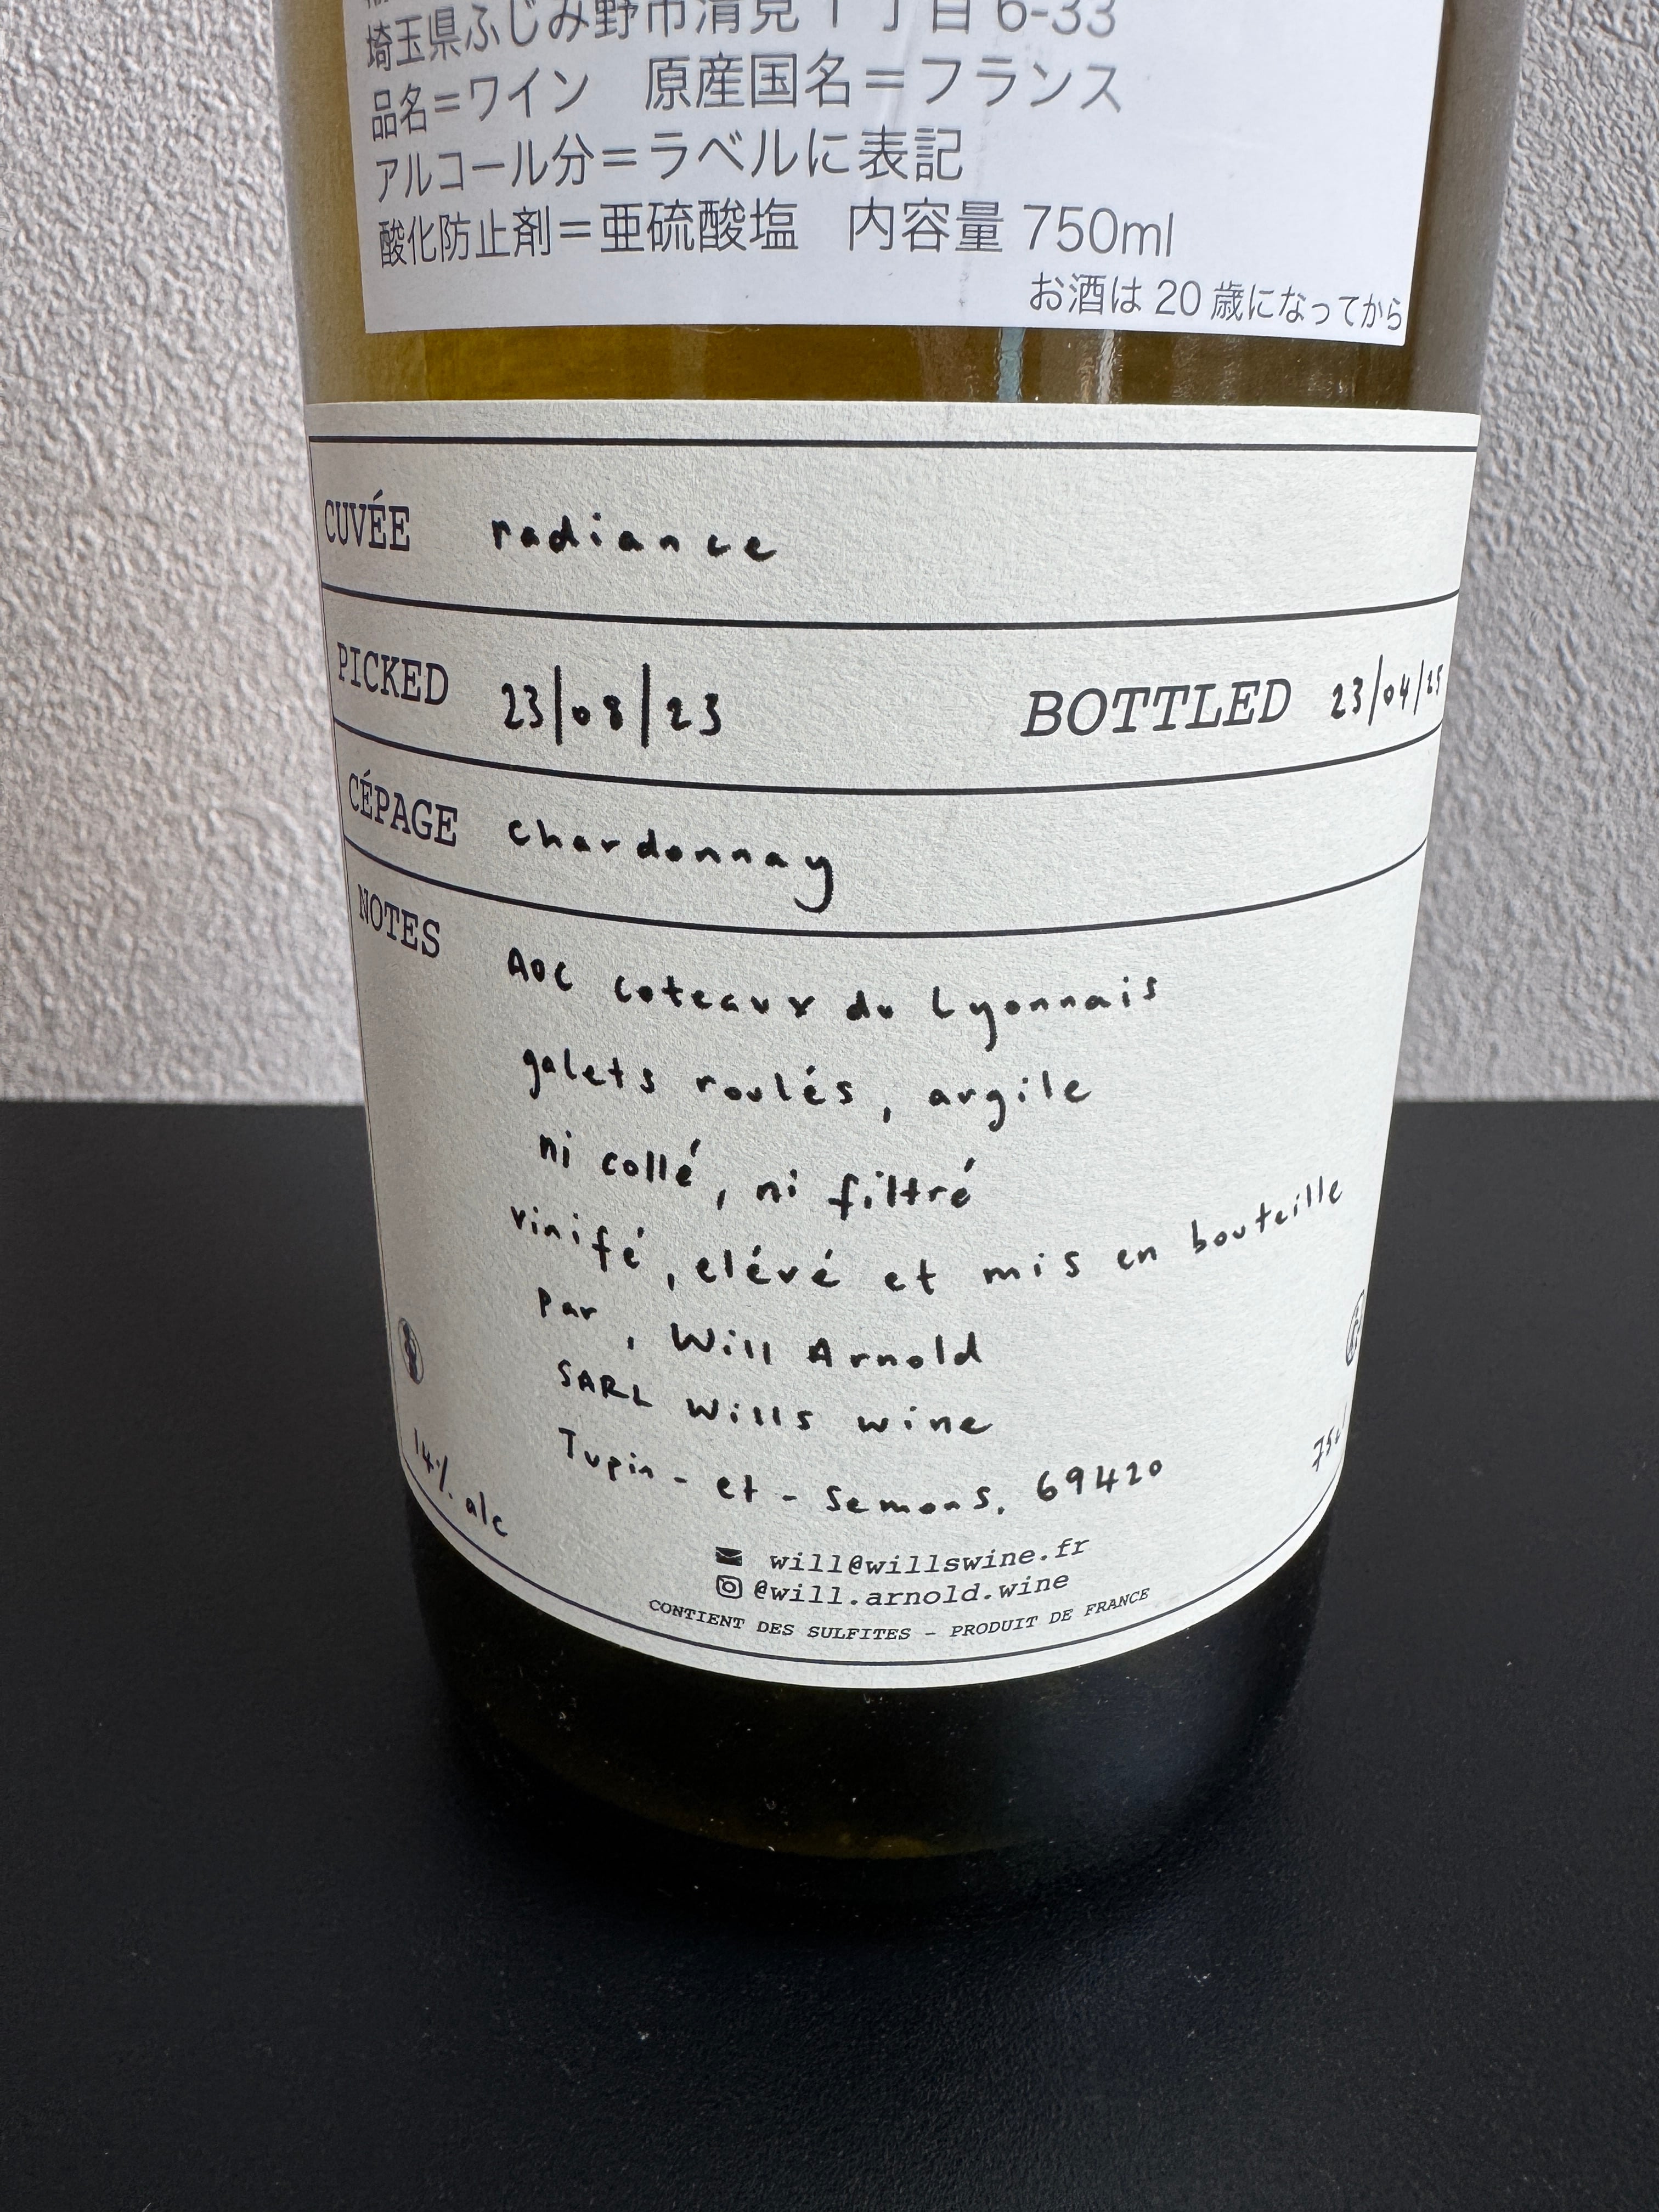 埼玉県ふじみ野市清見1丁目6-33
品名=ワイン　原産国名=フランス
アルコール分=ラベルに表記
酸化防止剤=亜硫酸塩　内容量 750ml
お酒は 20 歳になってから
CUVÉE radiance
PICKED 23|08|23 BOTTLED 23|04|25
CÉPAGE chardonnay
NOTES
AOC coteaux du Lyonnais
galets roulés, argile
ni collé, ni filtré
vinifé, elévé et mis en bouteille
Par, Will Arnold
SARL Wills wine
Tupin-et-Semons, 69420
14% alc 75cl
will@willswine.fr
@will.arnold.wine
CONTIENT DES SULFITES - PRODUIT DE FRANCE